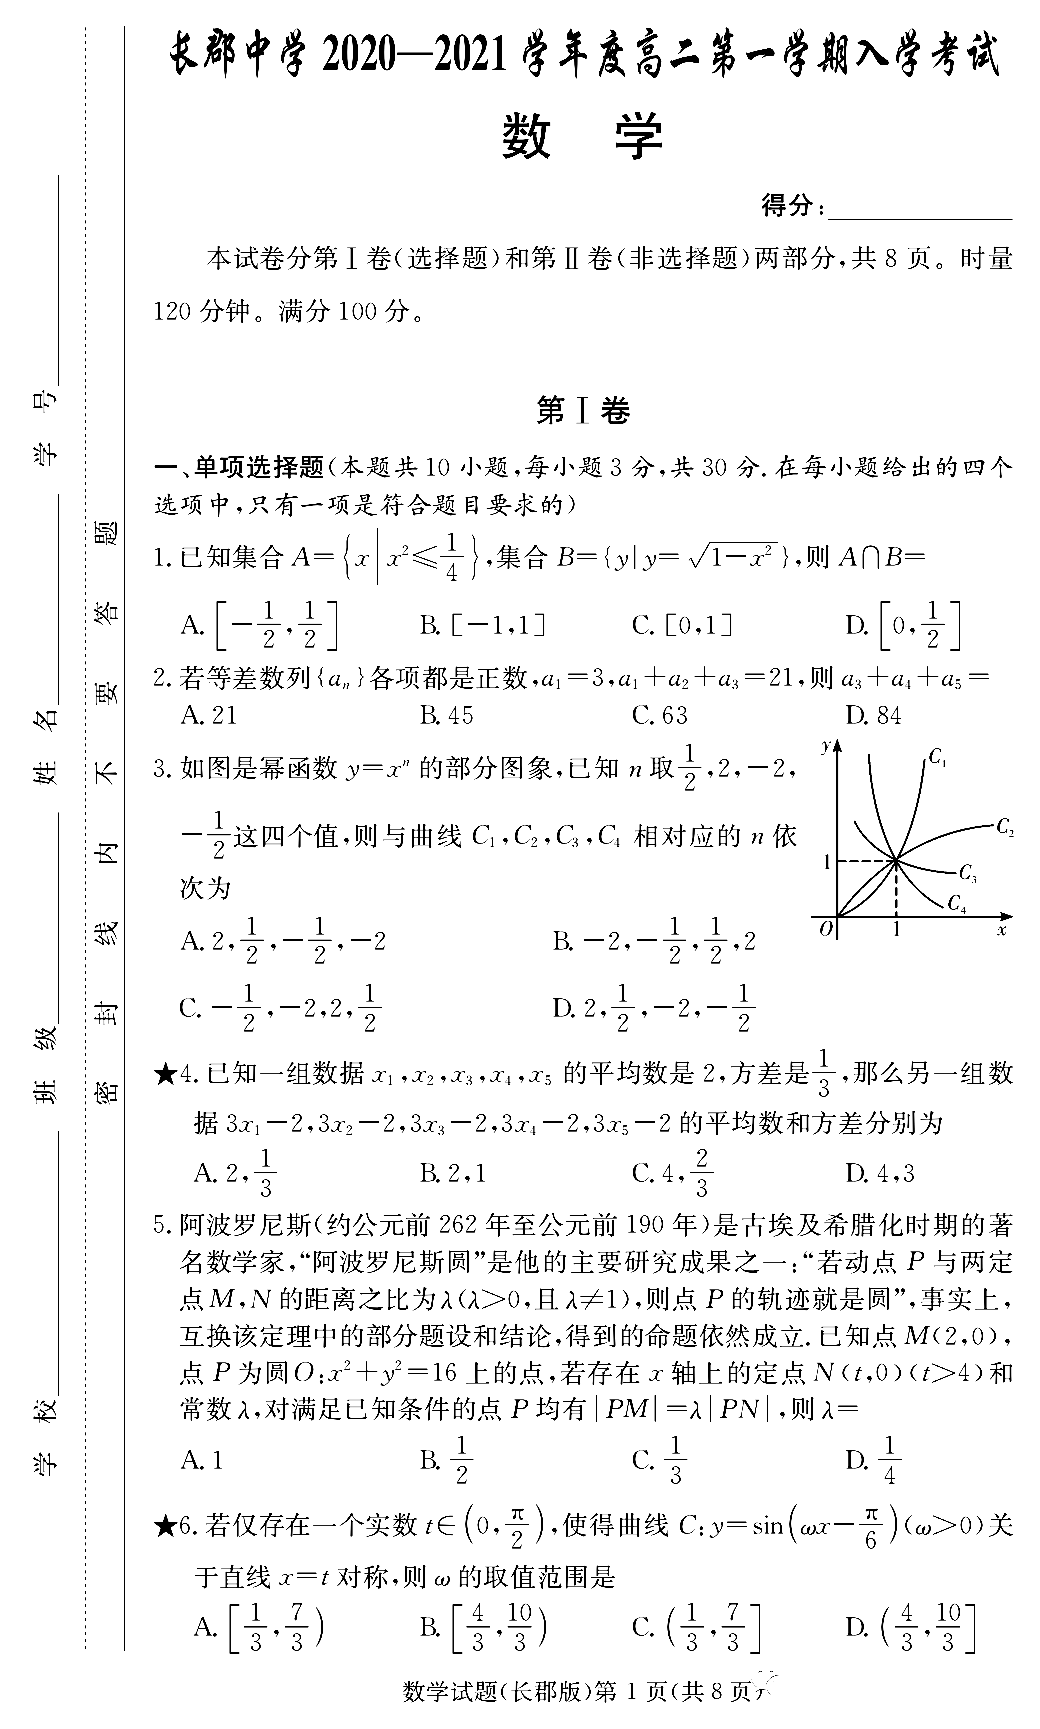 长郡中学 2020—2021 学年度高二第一学期入学考试
数 学
得分:
本试卷分第Ⅰ卷(选择题)和第Ⅱ卷(非选择题)两部分,共 8 页。时量
120 分钟。满分 100 分。
第Ⅰ卷
一、单项选择题(本题共 10 小题,每小题 3 分,共 30 分.在每小题给出的四个
选项中,只有一项是符合题目要求的)
1. 已知集合 A={x|x²≤1/4},集合 B={y|y=√(1−x²)},则 A∩B=
A. [−1/2,1/2] B. [−1,1] C. [0,1] D. [0,1/2]
2. 若等差数列{aₙ}各项都是正数,a₁=3,a₁+a₂+a₃=21,则 a₃+a₄+a₅=
A. 21 B. 45 C. 63 D. 84
3. 如图是幂函数 y=xⁿ 的部分图象,已知 n 取 1/2,2,−2,
−1/2 这四个值,则与曲线 C₁,C₂,C₃,C₄ 相对应的 n 依
次为
y C₁ C₂ 1 C₃ C₄ O 1 x
A. 2,1/2,−1/2,−2 B. −2,−1/2,1/2,2
C. −1/2,−2,2,1/2 D. 2,1/2,−2,−1/2
★4. 已知一组数据 x₁,x₂,x₃,x₄,x₅ 的平均数是 2,方差是 1/3,那么另一组数
据 3x₁−2,3x₂−2,3x₃−2,3x₄−2,3x₅−2 的平均数和方差分别为
A. 2,1/3 B. 2,1 C. 4,2/3 D. 4,3
5. 阿波罗尼斯(约公元前 262 年至公元前 190 年)是古埃及希腊化时期的著
名数学家,“阿波罗尼斯圆”是他的主要研究成果之一:“若动点 P 与两定
点 M,N 的距离之比为 λ(λ>0,且 λ≠1),则点 P 的轨迹就是圆”,事实上,
互换该定理中的部分题设和结论,得到的命题依然成立.已知点 M(2,0),
点 P 为圆O:x²+y²=16 上的点,若存在 x 轴上的定点 N(t,0)(t>4)和
常数 λ,对满足已知条件的点 P 均有|PM|=λ|PN|,则 λ=
A. 1 B. 1/2 C. 1/3 D. 1/4
★6. 若仅存在一个实数 t∈(0,π/2),使得曲线 C:y=sin(ωx−π/6)(ω>0)关
于直线 x=t 对称,则 ω 的取值范围是
A. [1/3,7/3) B. [4/3,10/3) C. (1/3,7/3] D. (4/3,10/3]
数学试题(长郡版)第 1 页(共 8 页)
学 校 班 级 姓 名 学 号
密 封 线 内 不 要 答 题